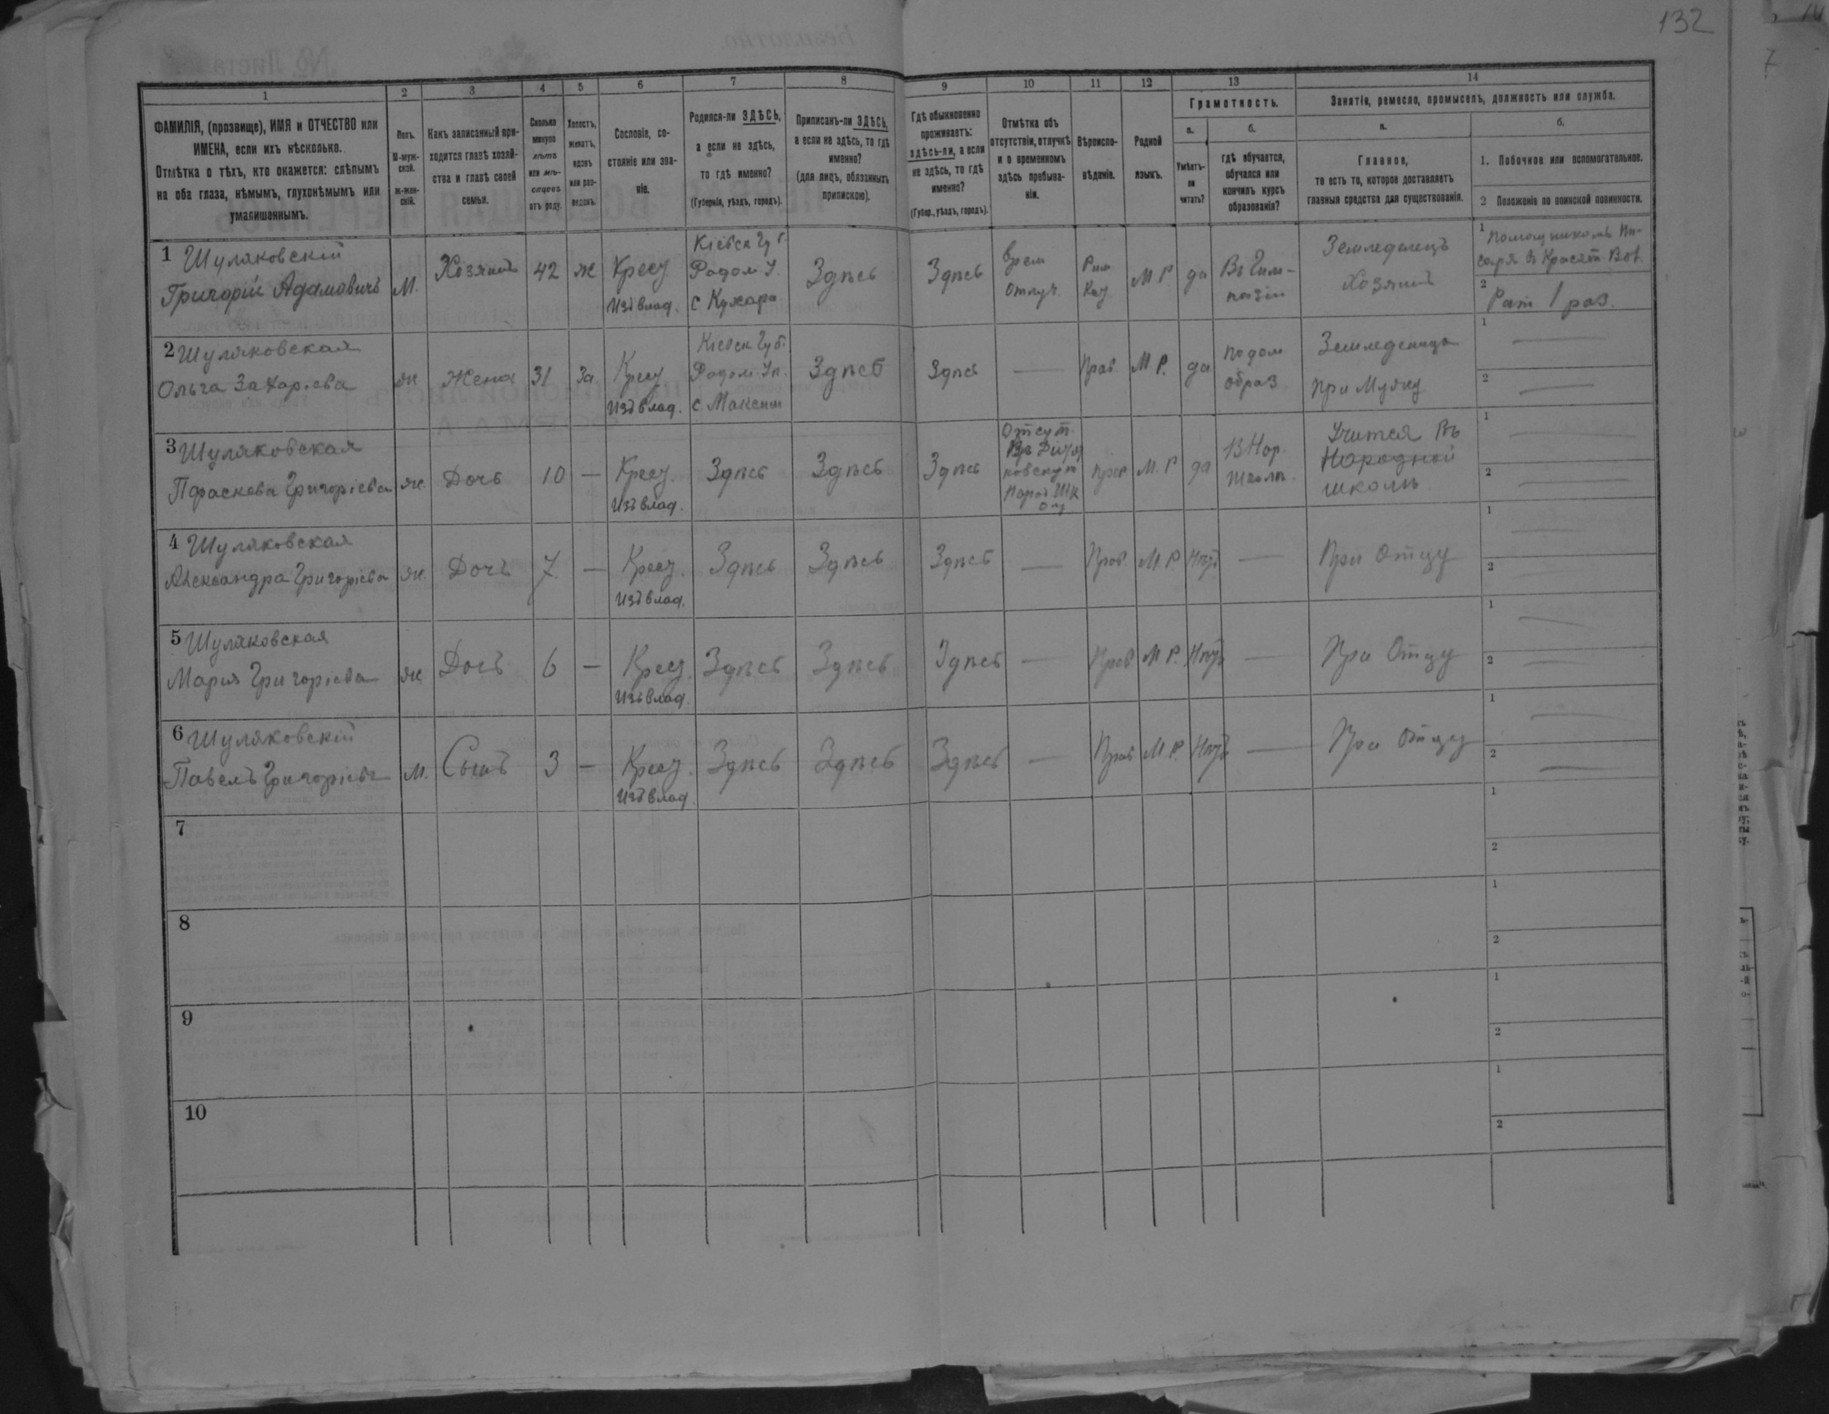 132
1 2 3 4 5 6 7 8 9 10 11 12 13 14
ФАМИЛІЯ, (прозвище), ИМЯ и ОТЧЕСТВО или
ИМЕНА, если ихъ нѣсколько.
Отмѣтка о тѣхъ, кто окажется: слѣпымъ
на оба глаза, нѣмымъ, глухонѣмымъ или
умалишаннымъ.
Полъ.
М-муж-
ской.
Ж-жен-
скій.
Какъ записанный при-
ходится главѣ хозяй-
ства и главѣ своей
семьи.
Сколько
минуло
лѣтъ
или мѣ-
сяцевъ
отъ роду.
Холостъ,
женатъ,
вдовъ
или раз-
веденъ.
Сословіе, со-
стояніе или зва-
ніе.
Родился-ли ЗДѢСЬ,
а если не здѣсь,
то гдѣ именно?
(Губернія, уѣздъ, городъ).
Приписанъ-ли ЗДѢСЬ,
а если не здѣсь, то гдѣ
именно?
(для лицъ, обязанныхъ
припискою).
Гдѣ обыкновенно
проживаетъ:
здѣсь-ли, а если
не здѣсь, то гдѣ
именно?
(Губер., уѣздъ, городъ).
Отмѣтка объ
отсутствіи, отлучкѣ
и о временномъ
здѣсь пребыва-
ніи.
Вѣроиспо-
вѣданіе.
Родной
языкъ.
Грамотность.
а.
Умѣетъ-
ли
читать?
б.
гдѣ обучается,
обучался или
кончилъ курсъ
образованія?
Занятіе, ремесло, промыселъ, должность или служба.
а.
Главное,
то есть то, которое доставляетъ
главныя средства для существованія.
б.
1. Побочное или вспомогательное.
2 Положеніе по воинской повинности.
1 Шуляковскій
Григорій Адамовичъ
М.
Хозяинъ
42
ж
Крест
Изъ влад.
Кіевск Губ.
Радом У.
с Кухара
Здѣсь
Здѣсь
Врем
отлуч.
Рим
Кат.
М Р
да
Въ Гим-
назіи
Земледелецъ
Хозяинъ
1 Помощникомъ Пи-
саря в Красят. Вол.
2 Рат 1 раз.
2 Шуляковская
Ольга Захаріева
ж
Жена
31
За
Крест
Изъ влад.
Кіевск Губ.
Радом. Уп.
с Максим
Здѣсь
Здѣсь
—
Прав.
М. Р.
да
по дом
образ
Земледелица
При Мужу
1 —
2 —
3 Шуляковская
Параскева Григоріева
ж.
Дочь
10
—
Крест.
Изъ влад.
Здѣсь
Здѣсь
Здѣсь
Отсут.
Прав
М. Р
да
В Нар.
Школѣ.
Учится въ
Народной
школѣ
1 —
2 —
4 Шуляковская
Александра Григоріева
ж.
Дочь
7
—
Крест.
Изъ влад.
Здѣсь
Здѣсь
Здѣсь
—
Прав.
М. Р.
Нѣтъ
—
При отцу
1 —
2 —
5 Шуляковская
Мария Григоріева
ж
Дочь
6
—
Крест.
Изъ влад.
Здѣсь
Здѣсь
Здѣсь
—
Прав.
М. Р.
Нѣтъ
—
При Отцу
1 —
2 —
6 Шуляковскій
Павелъ Григоріевъ
м.
Сынъ
3
—
Крест.
Изъ влад.
Здѣсь
Здѣсь
Здѣсь
—
Прав
М. Р.
Нѣтъ
—
При отцу
1 —
2 —
7
1
2
8
1
2
9
1
2
10
1
2